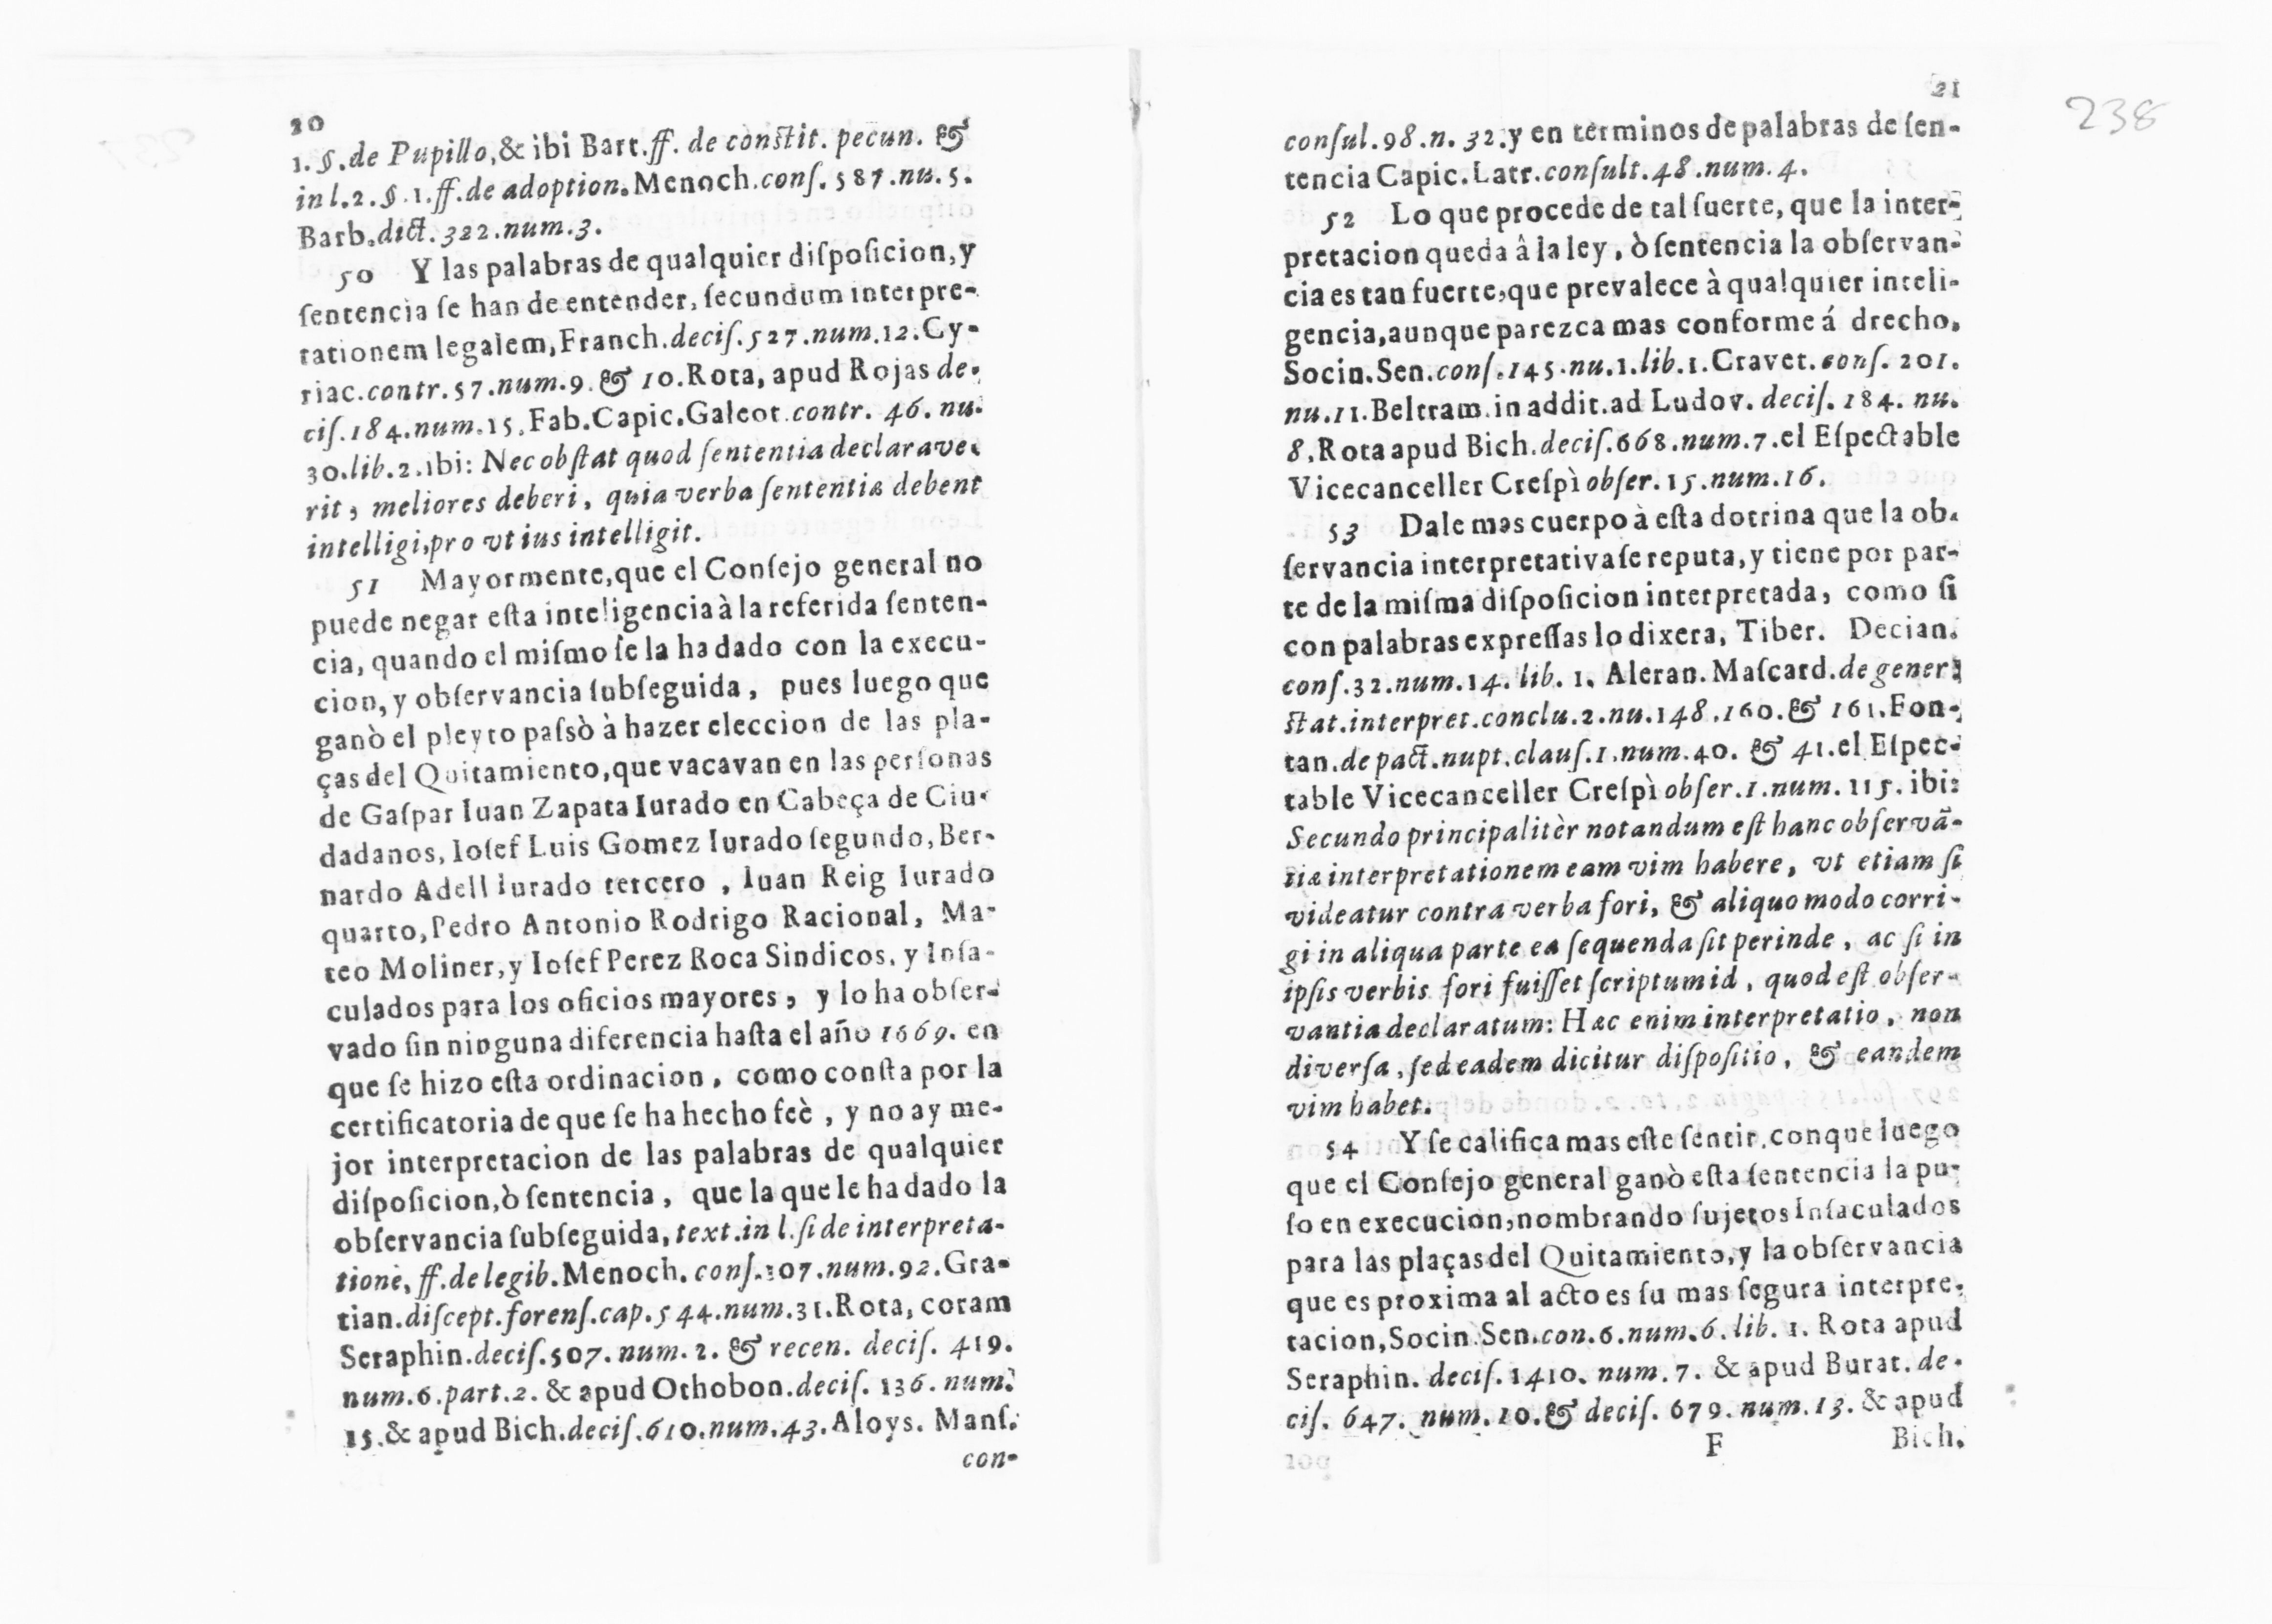 20
1. §. de Pupillo, & ibi Bart. ff. de constit. pecun. &
in l. 2. §. 1. ff. de adoption. Menoch. conſ. 587. nu. 5.
Barb. dict. 322. num. 3.
50 Y las palabras de qualquier diſpoſicion, y
ſentencia ſe han de entender, ſecundum interpre-
tationem legalem, Franch. deciſ. 527. num. 12. Cy-
riac. contr. 57. num. 9. & 10. Rota, apud Rojas de-
ciſ. 184. num. 15. Fab. Capic. Galeot. contr. 46. nu.
30. lib. 2. ibi: Nec obſtat quod ſententia declarave-
rit, meliores deberi, quia verba ſententiæ debent
intelligi, pro vt ius intelligit.
51 Mayormente, que el Conſejo general no
puede negar eſta inteligencia à la referida ſenten-
cia, quando el miſmo ſe la ha dado con la execu-
cion, y obſervancia ſubſeguida, pues luego que
ganò el pleyto paſsò à hazer eleccion de las pla-
ças del Quitamiento, que vacavan en las perſonas
de Gaſpar Iuan Zapata Iurado en Cabeça de Ciu-
dadanos, Ioſef Luis Gomez Iurado ſegundo, Ber-
nardo Adell Iurado tercero, Iuan Reig Iurado
quarto, Pedro Antonio Rodrigo Racional, Ma-
teo Moliner, y Ioſef Perez Roca Sindicos, y Inſa-
culados para los oficios mayores, y lo ha obſer-
vado ſin ninguna diferencia haſta el año 1669. en
que ſe hizo eſta ordinacion, como conſta por la
certificatoria de que ſe ha hecho feè, y no ay me-
jor interpretacion de las palabras de qualquier
diſpoſicion, ò ſentencia, que la que le ha dado la
obſervancia ſubſeguida, text. in l. ſi de interpreta-
tione, ff. de legib. Menoch. conſ. 107. num. 92. Gra-
tian. diſcept. forenſ. cap. 544. num. 31. Rota, coram
Seraphin. deciſ. 507. num. 2. & recen. deciſ. 419.
num. 6. part. 2. & apud Othobon. deciſ. 136. num.
15. & apud Bich. deciſ. 610. num. 43. Aloys. Manſ.
con-
21
238
conſul. 98. n. 32. y en terminos de palabras de ſen-
tencia Capic. Latr. conſult. 48. num. 4.
52 Lo que procede de tal ſuerte, que la inter-
pretacion queda â la ley, ò ſentencia la obſervan-
cia es tan fuerte, que prevalece à qualquier inteli-
gencia, aunque parezca mas conforme á drecho,
Socin. Sen. conſ. 145. nu. 1. lib. 1. Cravet. conſ. 201.
nu. 11. Beltram. in addit. ad Ludov. deciſ. 184. nu.
8. Rota apud Bich. deciſ. 668. num. 7. el Eſpectable
Vicecanceller Creſpì obſer. 15. num. 16.
53 Dale mas cuerpo à eſta dotrina que la ob-
ſervancia interpretativa ſe reputa, y tiene por par-
te de la miſma diſpoſicion interpretada, como ſi
con palabras expreſſas lo dixera, Tiber. Decian.
conſ. 32. num. 14. lib. 1. Aleran. Maſcard. de gener.
ſtat. interpret. conclu. 2. nu. 148. 160. & 161. Fon-
tan. de pact. nupt. clauſ. 1. num. 40. & 41. el Eſpec-
table Vicecanceller Creſpì obſer. 1. num. 115. ibi:
Secundo principalitèr notandum eſt hanc obſervã-
tiæ interpretationem eam vim habere, vt etiam ſi
videatur contra verba fori, & aliquo modo corri-
gi in aliqua parte ea ſequenda ſit perinde, ac ſi in
ipſis verbis fori fuiſſet ſcriptum id, quod eſt obſer-
vantia declaratum: Hæc enim interpretatio, non
diverſa, ſed eadem dicitur diſpoſitio, & eandem
vim habet.
54 Y ſe califica mas eſte ſentir, con que luego
que el Conſejo general ganò eſta ſentencia la pu-
ſo en execucion, nombrando ſujetos Inſaculados
para las plaças del Quitamiento, y la obſervancia
que es proxima al acto es ſu mas ſegura interpre-
tacion, Socin. Sen. con. 6. num. 6. lib. 1. Rota apud
Seraphin. deciſ. 1410. num. 7. & apud Burat. de-
ciſ. 647. num. 10. & deciſ. 679. num. 13. & apud
F Bich.